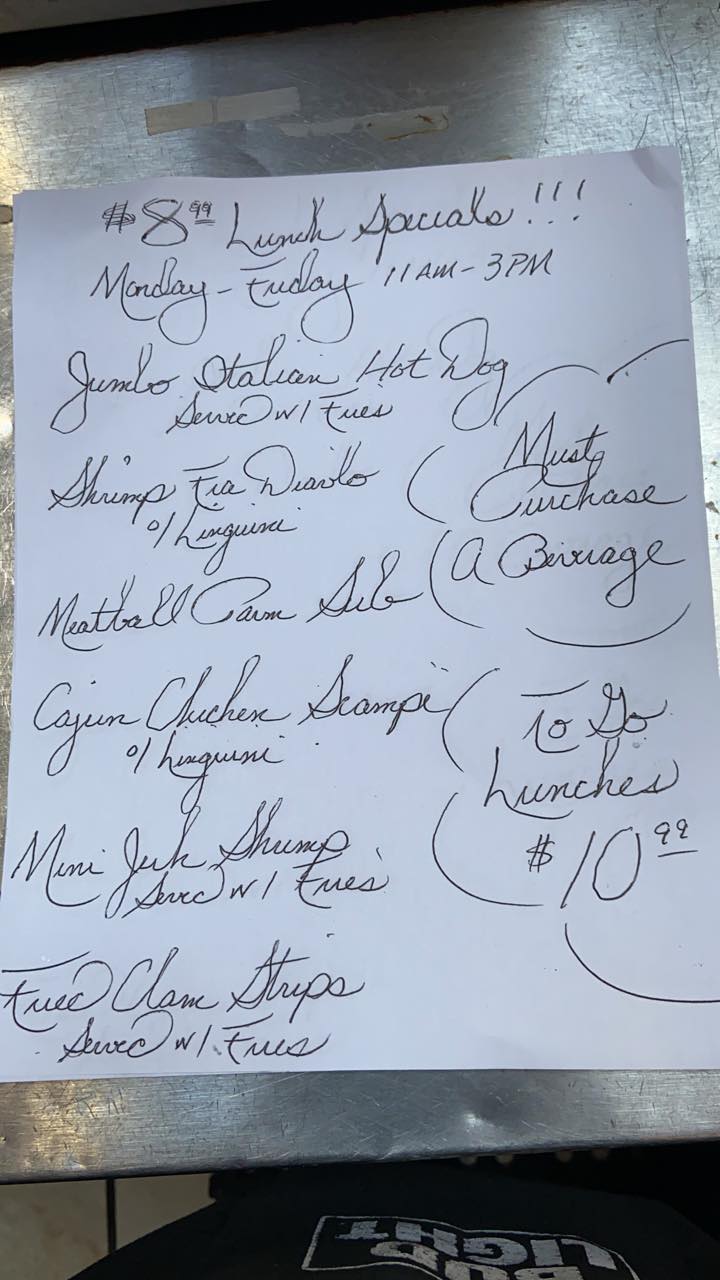 $8.99 Lunch Specials!!!
Monday - Friday 11AM - 3PM
Jumbo Italian Hot Dog
Served w/ Fries
Shrimp Fra Diavlo
o/ Linguini
Meatball Parm Sub
Cajun Chicken Scampi
o/ Linguini
Mini Jerk Shrimp
Served w/ Fries
Fried Clam Strips
Served w/ Fries
Must
Purchase
A Beverage
To Go
Lunches
$10.99
BUD
LIGHT